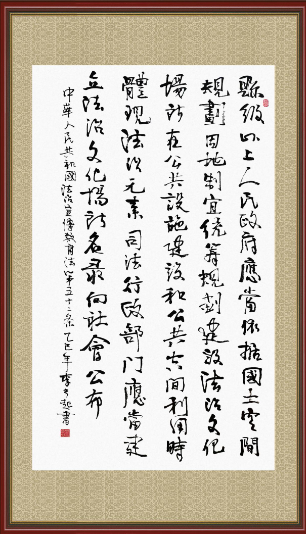 縣級以上人民政府應當依據國土空間
規劃因地制宜統籌規劃建設法治文化
場所在公共設施建設和公共空間利用時
體現法治元素司法行政部門應當建
立法治文化場所名录向社會公布
中華人民共和國法治宣傳教育法第五十二条乙巳年李 起書